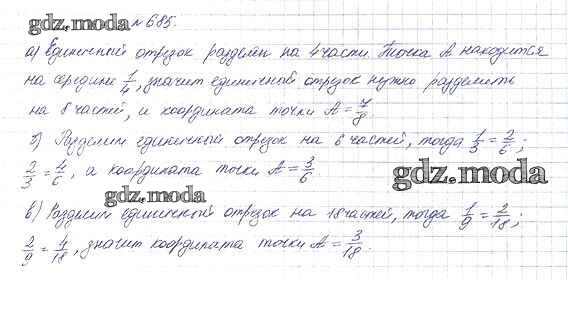 gdz.moda № 685.
а) Единичный отрезок разделён на 4 части. Точка А находится
на середине 1/4, значит единичный отрезок нужно разделить
на 8 частей, и координата точки А = 7/8.
б) Разделим единичный отрезок на 6 частей, тогда 1/3 = 2/6;
2/3 = 4/6, а координата точки А = 3/6.
gdz.moda
gdz.moda
в) Разделим единичный отрезок на 18 частей, тогда 1/9 = 2/18;
2/9 = 4/18, значит координата точки А = 3/18.